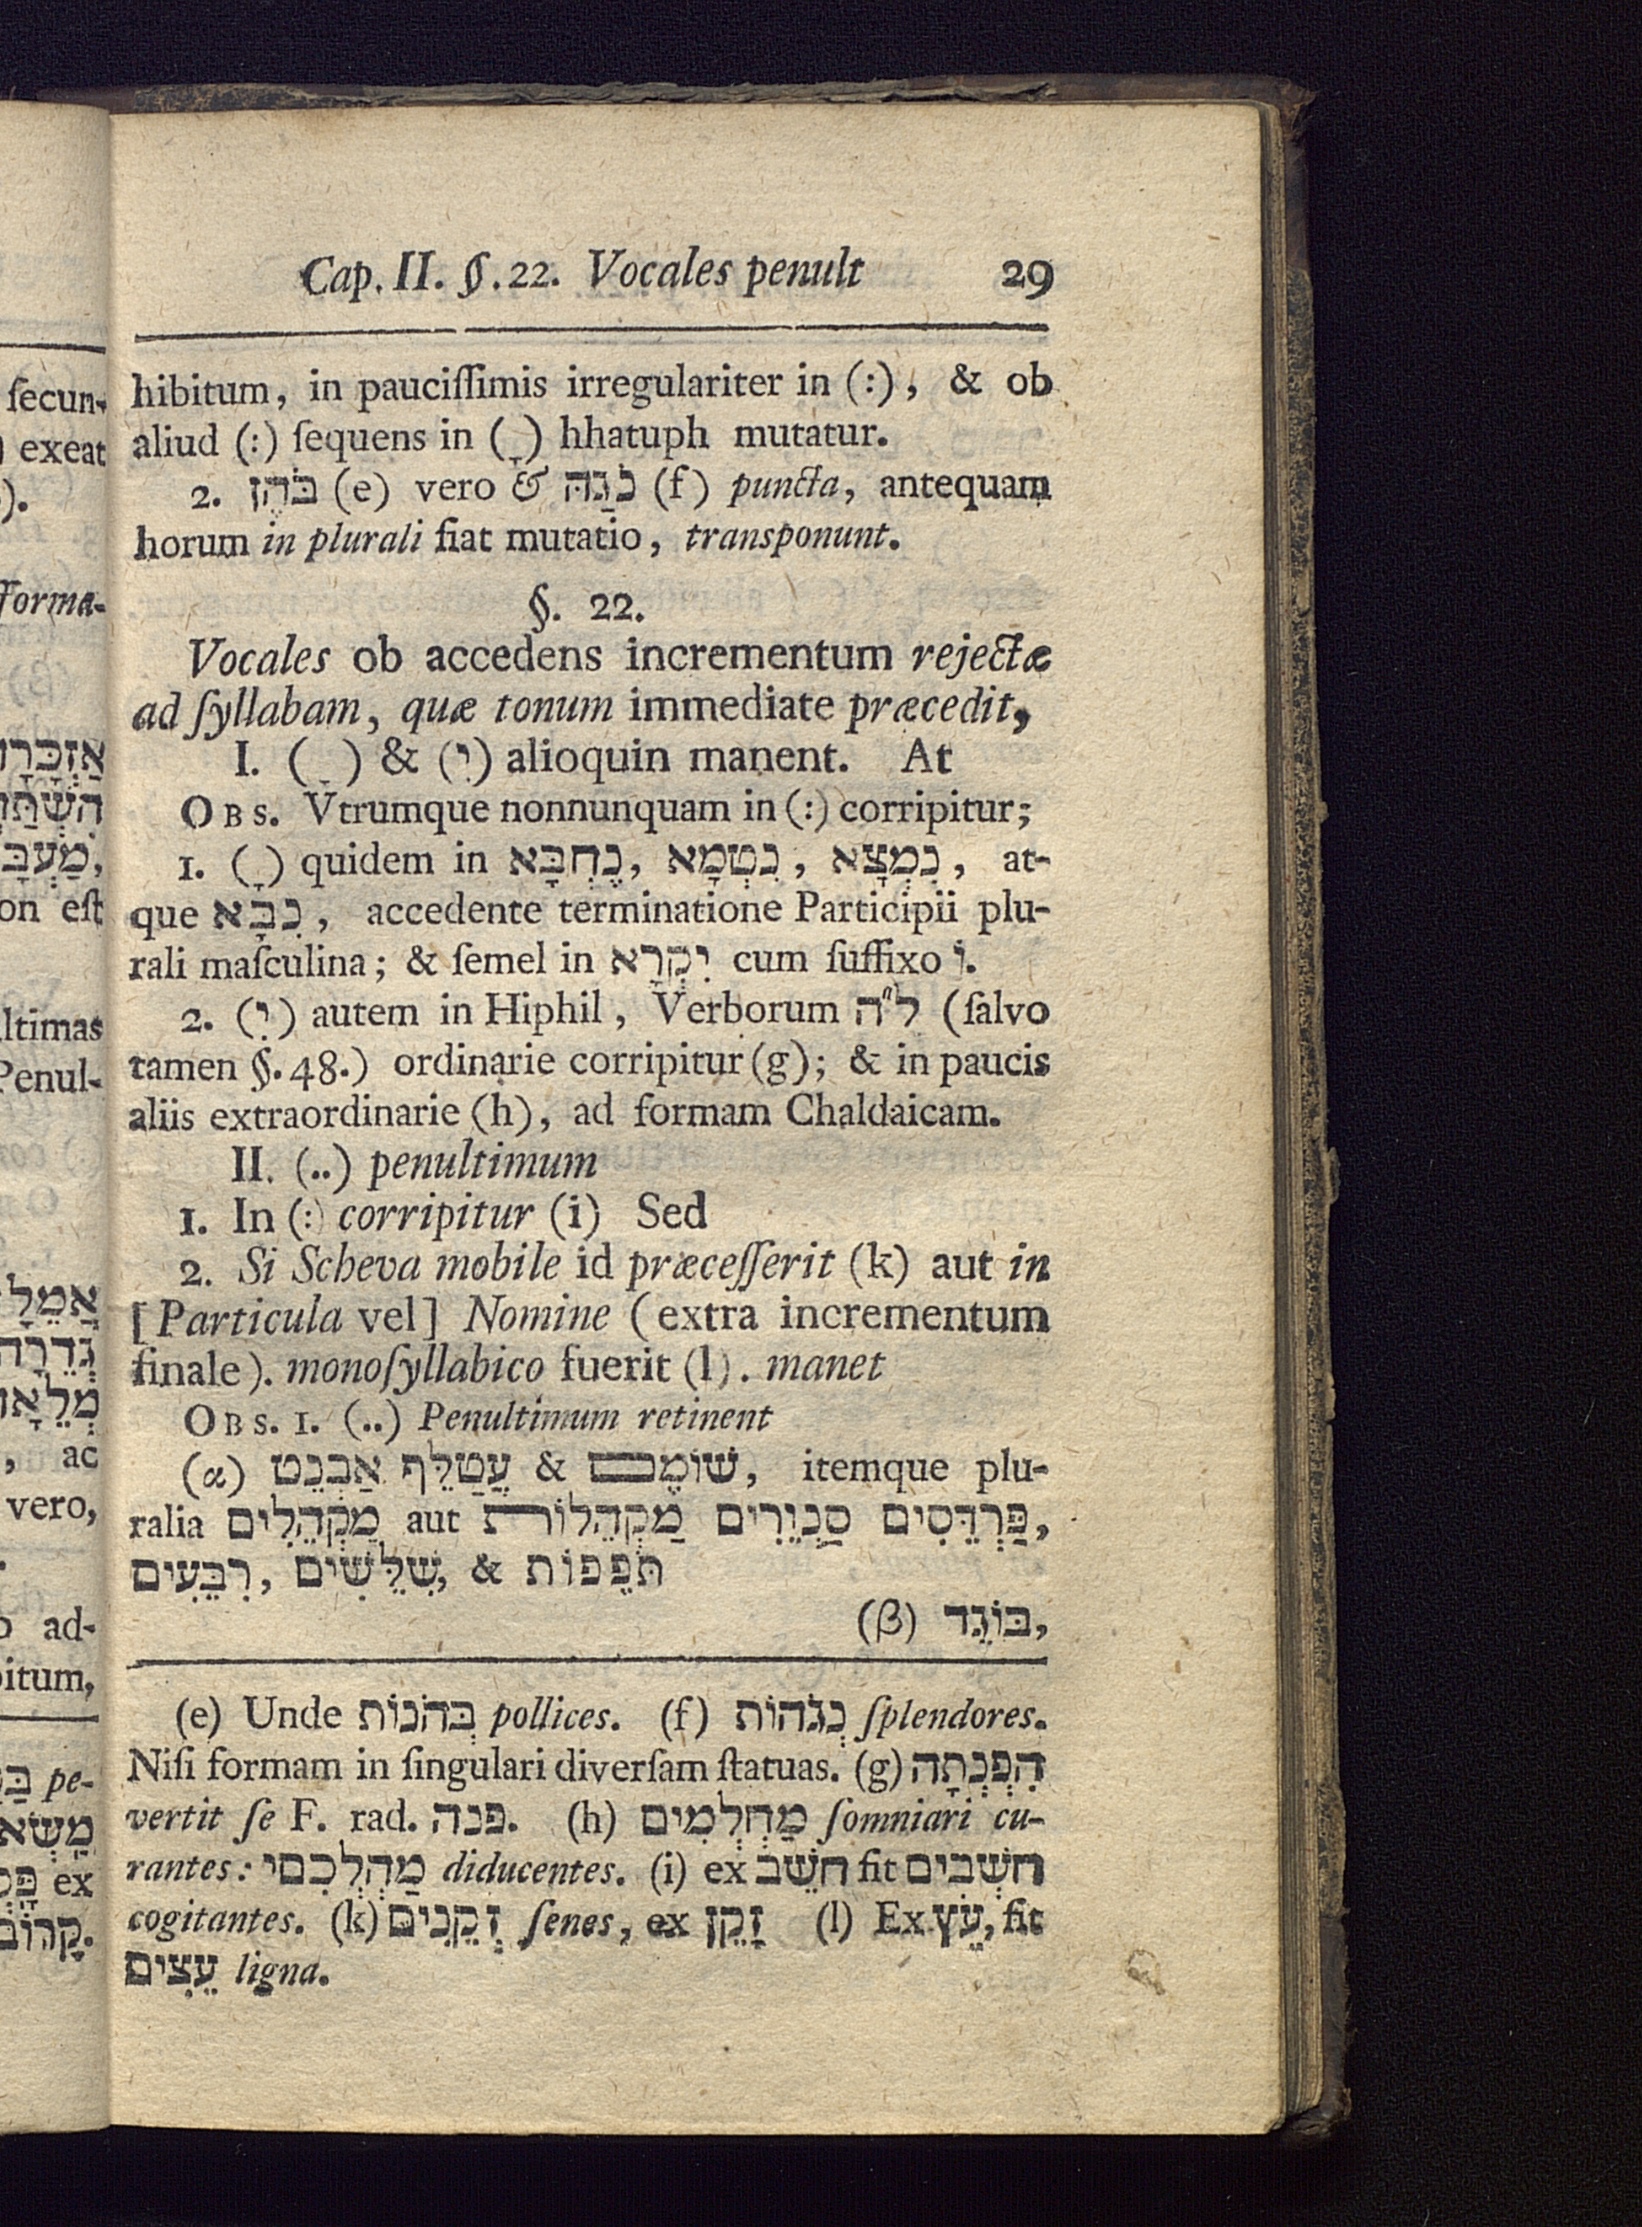 Cap. II. §. 22. Vocales penult 29
hibitum, in pauciſſimis irregulariter in (:), & ob
aliud (:) ſequens in ( ָ ) hhatuph mutatur.
2. בֹּהֶן (e) vero & נֹגַהּ (f) puncta, antequam
horum in plurali fiat mutatio, transponunt.
§. 22.
Vocales ob accedens incrementum rejectæ
ad ſyllabam, quæ tonum immediate præcedit,
I. ( ָ ) & (יִ) alioquin manent. At
OBS. Vtrumque nonnunquam in (:) corripitur;
1. ( ָ ) quidem in נֶחְבָּא, נִטְמָא, נִמְצָא, at-
que נִבָּא, accedente terminatione Participii plu-
rali maſculina; & ſemel in יִקְרָא cum ſuffixo וֹ.
2. (יִ) autem in Hiphil, Verborum ל״ה (ſalvo
tamen §. 48.) ordinarie corripitur (g); & in paucis
aliis extraordinarie (h), ad formam Chaldaicam.
II. (..) penultimum
1. In (:) corripitur (i) Sed
2. Si Scheva mobile id præceſſerit (k) aut in
[Particula vel] Nomine (extra incrementum
finale). monoſyllabico fuerit (l). manet
OBS. 1. (..) Penultimum retinent
(α) אַבְנֵט עֲטַלֵּף & שׁוֹמֵם, itemque plu-
ralia מַקְהֵלִים aut מַקְהֵלוֹת סַנְוֵרִים פַּרְדֵּסִים,
רִבֵּעִים, שִׁלֵּשִׁים, & תֹּפֵפוֹת
(β) בּוֹגֵד,
(e) Unde בְּהֹנוֹת pollices. (f) נְגֹהוֹת ſplendores.
Niſi formam in ſingulari diverſam ſtatuas. (g) הִפְנְתָה
vertit ſe F. rad. פנה. (h) מַחְלְמִים ſomniari cu-
rantes: מַהְלְכִםי diducentes. (i) ex חשֵׁב fit חשְׁבִים
cogitantes. (k) זְקֵנִים ſenes, ex זָקֵן (l) Ex עֵץ, fit
עֵצִים ligna.